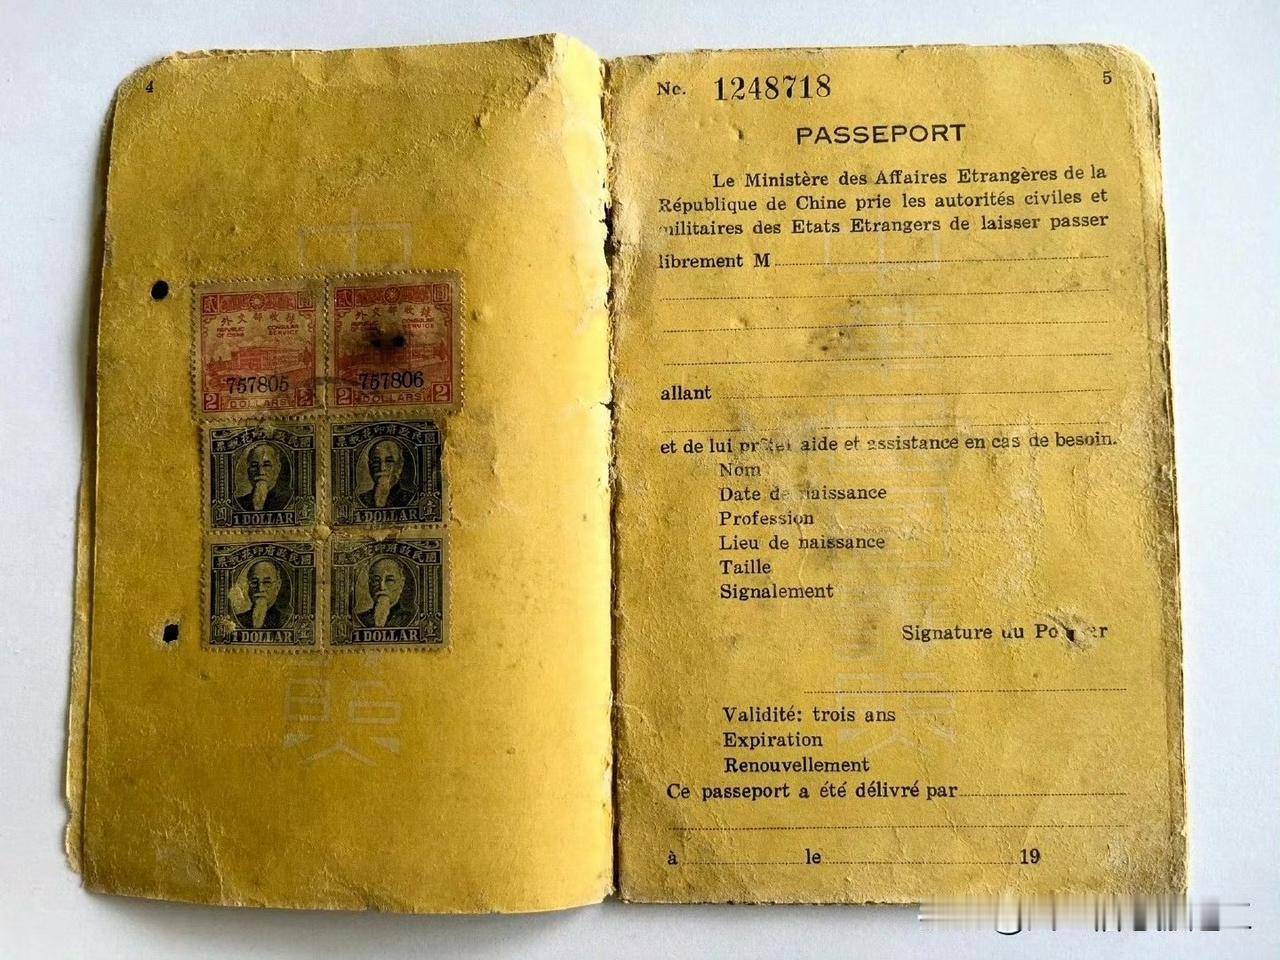 4
貳 圓
外交部收據
REPUBLIC OF CHINA CONSULAR SERVICE
757805
2 DOLLARS 2
貳 圓
外交部收據
SERVICE
757806
2 DOLLARS 2
國民政府印花稅票
1 DOLLAR
國民政府印花稅票
1 DOLLAR
國民政府印花稅票
1 DOLLAR
國民政府印花稅票
1 DOLLAR
No. 1248718
5
PASSEPORT
Le Ministère des Affaires Etrangères de la
République de Chine prie les autorités civiles et
militaires des Etats Etrangers de laisser passer
librement M
allant
et de lui prêter aide et assistance en cas de besoin.
Nom
Date de naissance
Profession
Lieu de naissance
Taille
Signalement
Signature du Porteur
Validité: trois ans
Expiration
Renouvellement
Ce passeport a été délivré par
à le 19
中華民國護照